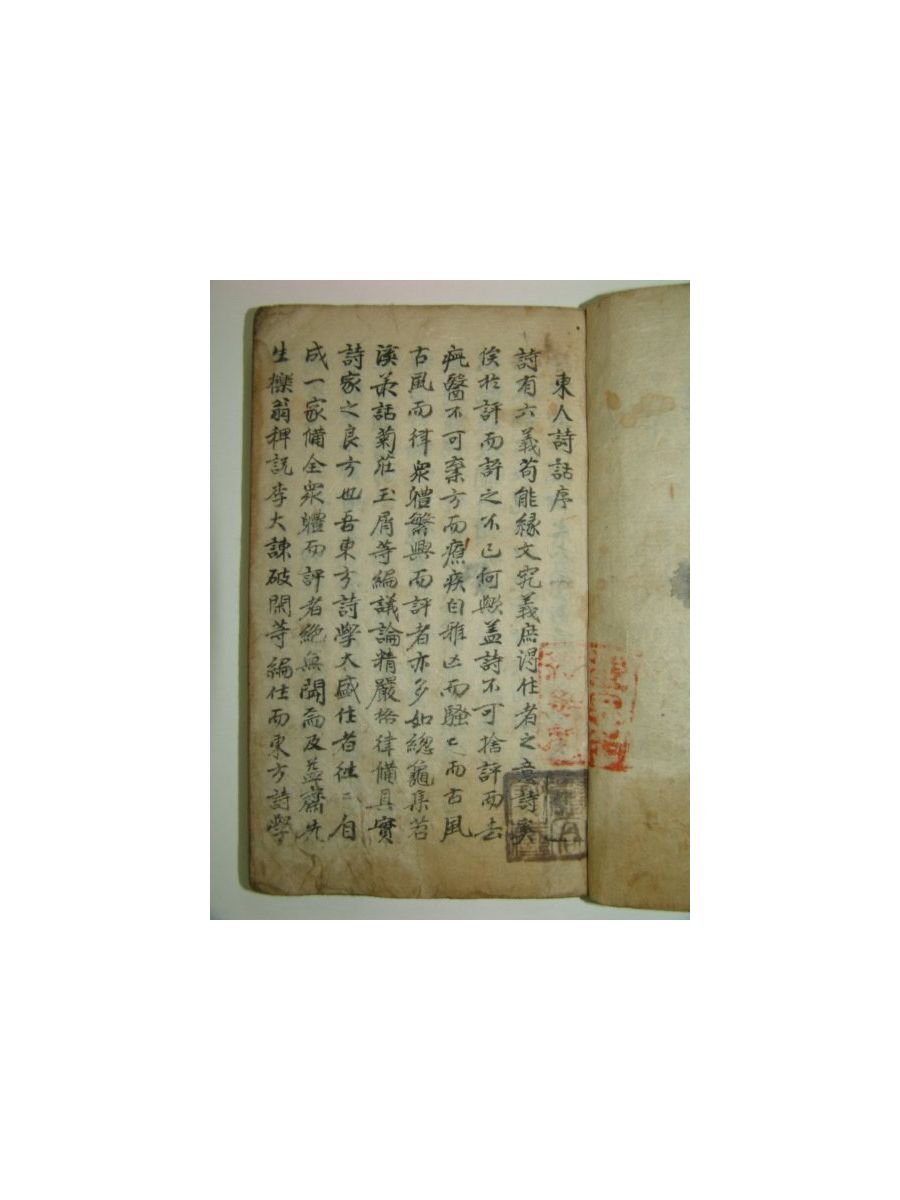 東人詩話序
詩有六義苟能緣文究義庶得作者之意詩奚
俟於評而評之不已何歟盖詩不可捨評而去
疵醫不可棄方而療疾自雅亡而騷〻而古風
古風而律衆體繁興而評者亦多如總龜集苕
溪叢話菊莊玉屑等編議論精嚴格律備具實
詩家之良方也吾東方詩學大盛作者徃〻自
成一家備全衆體而評者絶無聞焉及益齋先
生櫟翁稗說李大諫破閑等編作而東方詩學